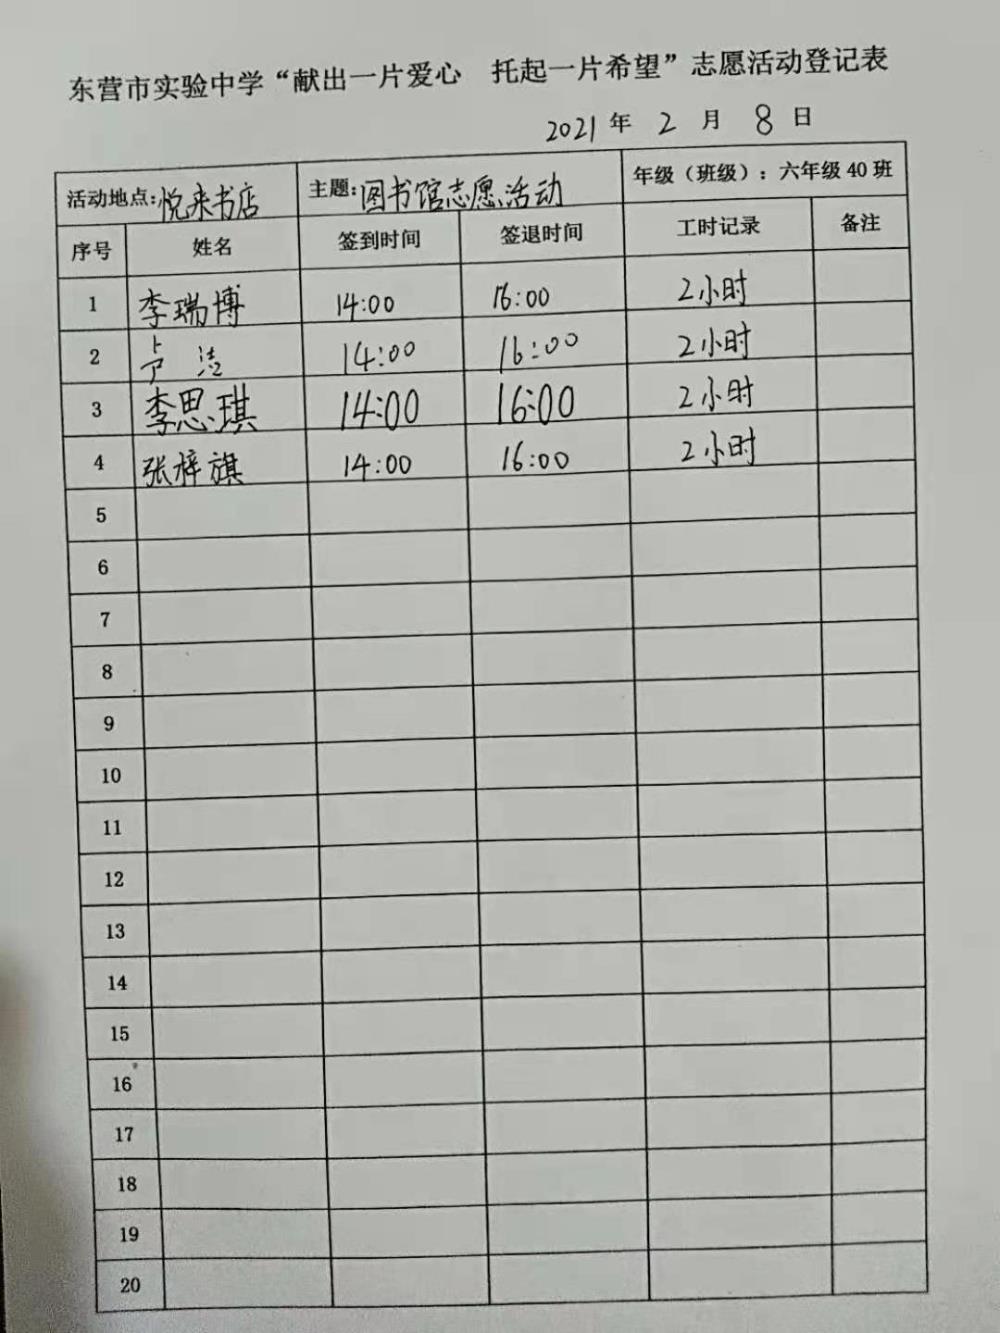 东营市实验中学“献出一片爱心 托起一片希望”志愿活动登记表
2021年 2 月 8 日
活动地点:悦来书店 主题:图书馆志愿活动 年级(班级):六年级40班
序号 姓名 签到时间 签退时间 工时记录 备注
1 李瑞博 14:00 16:00 2小时
2 14:00 16:00 2小时
3 李思琪 14:00 16:00 2小时
4 张梓旗 14:00 16:00 2小时
5
6
7
8
9
10
11
12
13
14
15
16
17
18
19
20